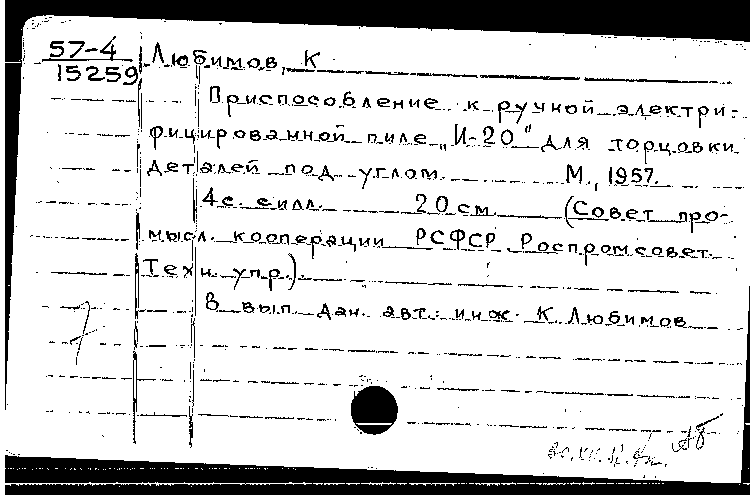 57-4
15259
Любимов, К
Приспособление к ручной электри-
фицированной пиле „И-20" для торцовки
деталей под углом. М., 1957.
4с. силл. 20 см. (Совет про-
мысл. кооперации РСФСР. Роспромсовет.
Техн. упр.).
В вып. дан. авт.: инж. К. Любимов